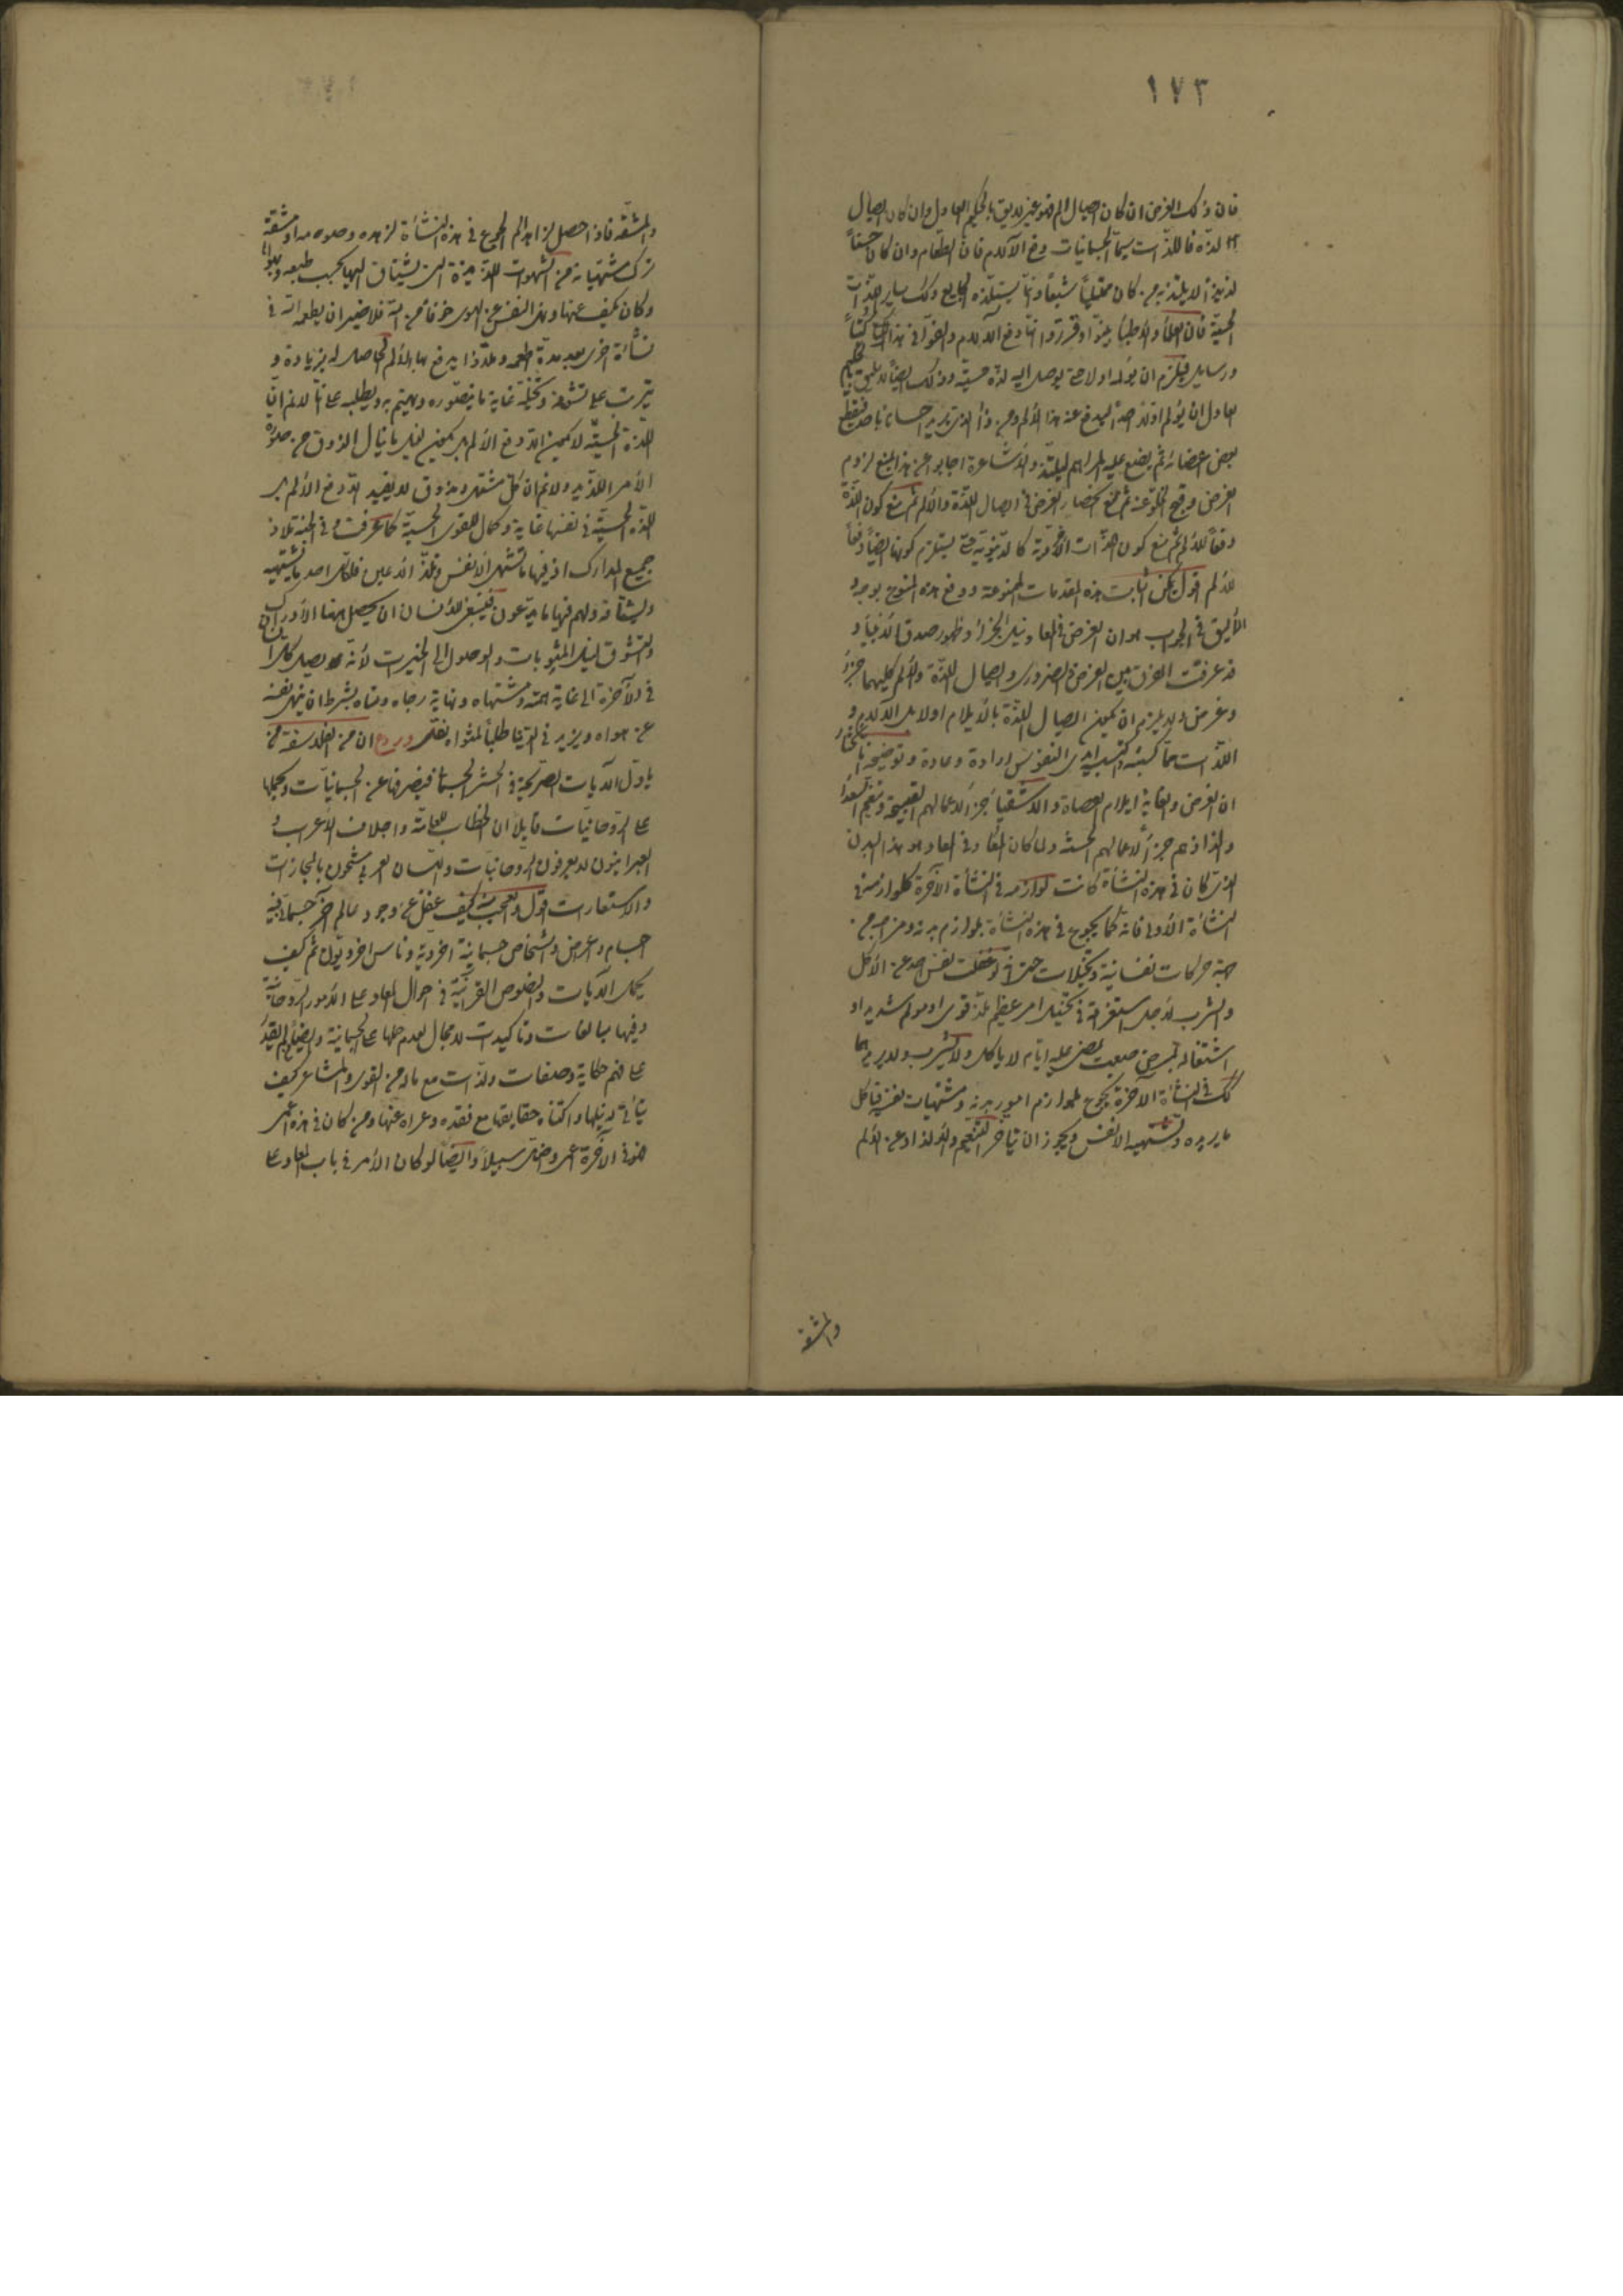 ١٧٣
فان ذلك الغرض ان كان ايصال الم فهو غير لايق بالحكيم العادل وان كان ايصال
لذة فاللذات سيما الجسمانيات دفع الآلام فان الطعام وان كان حسنا
لذيذا لا يلتذ به من كان ممتليا شبعا وانما يستلذه الجايع وكذلك ساير اللذات
الحسية فان العلماء والاطباء بينوا وقرروا انها دفع الآلام
ورسايل فيلزم ان يؤلمه اولا حتى يوصل اليه لذة حسية وذلك ايضا لا يليق
العادل ان يؤلم اولا احدا ليدفع عنه هذا الألم ومن ذا الذي يريد احسانا باحد فيقطع
بعض اعضائه ثم يضع عليه المراهم ليلتذ والأشاعرة اجابوا عن هذا بمنع لزوم
الغرض وقبح الخلو عنه ثم منع انحصار الغرض في ايصال اللذة والألم ثم منع كون اللذة
دفعا للألم ثم منع كون اللذات الأخروية كالدنيوية حتى يستلزم كونها ايضا دفعا
للألم اقول يمكن اثبات هذه المقدمات الممنوعة ودفع هذه المنوع بوجوه
الأليق في الجواب هو ان الغرض في المعاد نيل الجزاء وظهور صدق الأنبياء و
قد عرفت الفرق بين الغرض والضروري وايصال اللذة والألم كليهما جزاء
وغرض ولا يلزم ان يكون ايصال اللذة بالايلام اولا بل الآلام و
اللذات مما كسبته واكتسبته ايدي النفوس ارادة وعادة وتوضيحه
ان الغرض والغاية ايلام العصاة والاشقياء جزاء لاعمالهم القبيحة وتنعم السعداء
والذاذهم جزاء لاعمالهم الحسنة ولما كان المعاد في المعاد هو هذا البدن
الذي كان في هذه النشأة كانت لوازمه في النشأة الآخرة كلوازمه في
النشأة الأولى فانه كما يجوع في هذه النشأة بلوازم بدنه ومزاجه من
جهة حركات نفسانية وتخيلات حتى لو غفلت نفس احد عن الأكل
والشرب لاجل استغراقه في تخيل امر عظيم ملذ قوي او مولم شديد او
اشتغاله بمرض صعب يمضي عليه ايام لا ياكل ولا يشرب ولا يريدهما
كذلك في النشأة الآخرة يجوع بلوازم امور بدنه ومشتهيات نفسه فياكل
ما يريده وتشتهيه الانفس ويجوز ان يتاخر التنعم والالذاذ عن الألم
والمشقة
والمشقة فاذا حصل لزاهد الم الجوع في هذه النشأة لزهده وصومه مدا ومشقة
ترك مشتهياته من الشهوات اللذيذة التي يشتاق اليها بحسب طبعه
وكان يكف عنها ونهى النفس عن الهوى خوفا من الله فلا ضير ان يطعمه الله في
نشأة اخرى بعد مدة طعمه ولذذا يدفع بها الألم الحاصل له بزيادة و
يترتب على تشوقه وتخيله غاية ما يتصوره ويهتم به ويطلبه على انا لانم ان
اللذة الحسية لا يكون الا دفع الألم بل يكون نيل ما ينال الذوق من حلاوة
الأمر اللذيذ ولانم ان كل مشتهى ومذوق لا يفيد الا دفع الألم بل
اللذة الحسية في نفسها غاية وكمال للقوى الحسية كما عرفت وفي الجنة تلاذ
جميع المدارك اذ فيها ما تشتهي الأنفس وتلذ الأعين فلكل احد ما يشتهيه
ويشتاقه ولهم فيها ما يدعون فينبغي للانسان ان يحصل ههنا الأدراك
والتشوق لنيل المثوبات والوصول الى الخيرات لأنه يصل كل انسان
في الآخرة الى غاية همته ومشتهاه ونهاية رجاه ومناه بشرط ان ينهى نفسه
عن هواه ويزيد في التقى طلبا لمثواه نقل ان من الفلاسفة من
ياول الآيات الصريحة في الحشر الجسماني فيصرفها عن الجسمانيات ويحملها
على الروحانيات قايلا ان الخطاب للعامة واجلاف الأعراب و
العبرانيون لا يعرفون الروحانيات واللسان العربي مشحون بالمجازات
والاستعارات اقول والعجب منه كيف غفل عن وجود عالم آخر جسماني فيه
اجسام واعراض واشخاص جسمانية اخروية وناس اخرويون ثم كيف
يحمل الآيات والنصوص القرآنية في احوال المعاد على الأمور الروحانية
وفيها مبالغات وتاكيدات لا مجال لعدم حملها على الجسمانية وايضا لم يقدر
على فهم حكاية وصفات ولذات مع ماله من القوى والمشاعر كيف
يتأتى له نيلها واكتناه حقايقها مع فقده وعراه عنها ومن كان في هذه اعمى
فهو في الآخرة اعمى واضل سبيلا وايضا لو كان الأمر في باب المعاد على